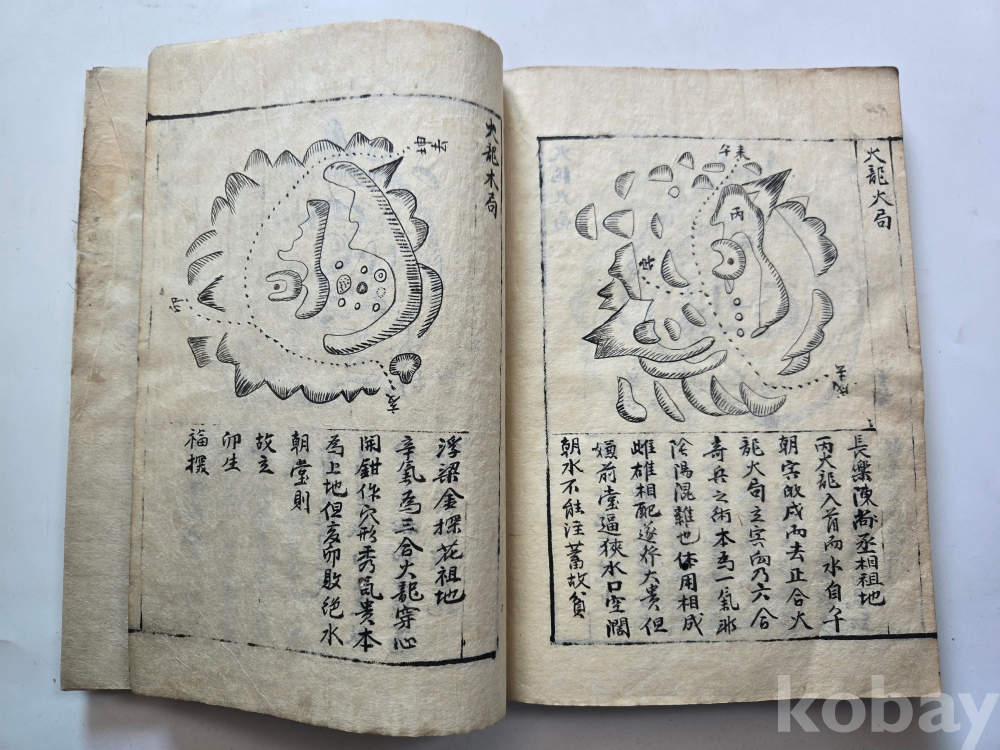 火龍火局
未
午
丙
戌
長樂陳尚丞相祖地
丙火龍入首而水自午
朝宾故戌而去正合火
龍火局立宾向乃六合
奇兵之術本為一氣非
陰陽混雜也体用相成
雌雄相配遂將大貴但
嫌前堂逼狹水口空濶
朝水不能注蓄故貧
火龍木局
坤
亥
浮梁金探花祖地
辛氣為三合火龍穿心
開鉗作穴形秀氣貴本
為上地但亥卯敗絶水
朝堂則
故主
卯生
福㩀
kobay